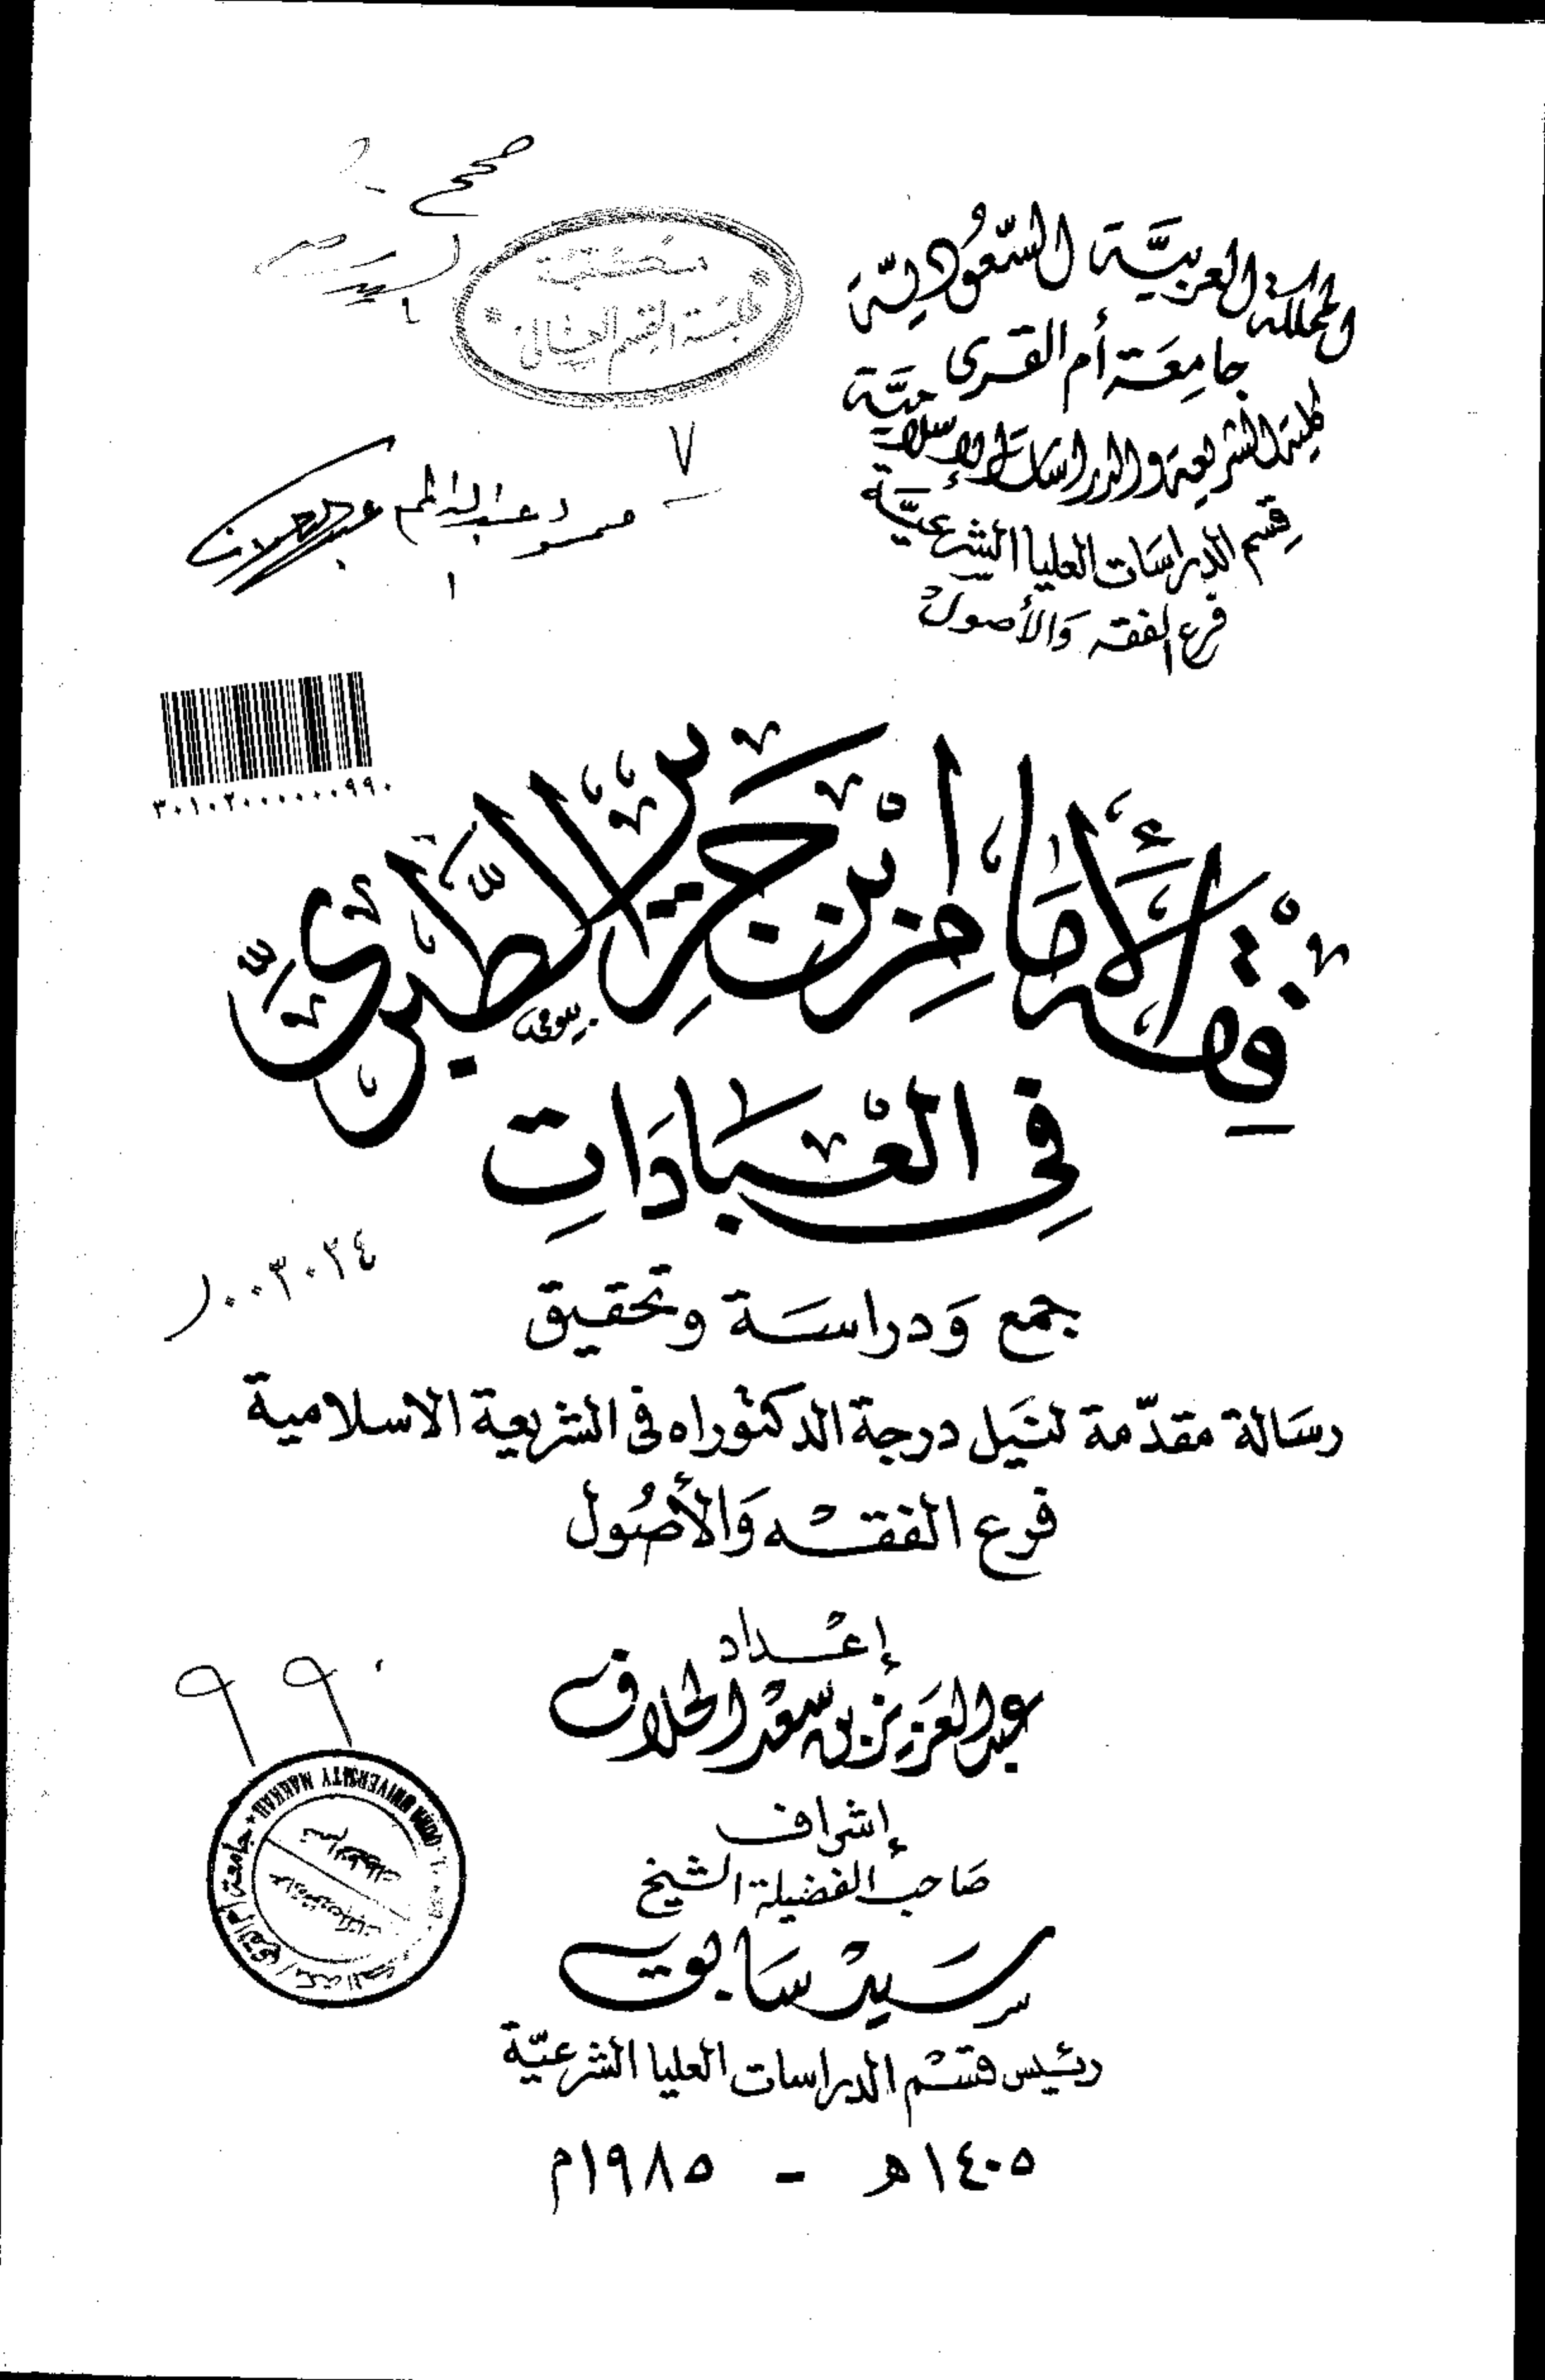 المملكة العربيَّة السّعُوديّة
جامِعَة أم القرى
كلية الشريعة والدراسَات الإسلاميَّة
قِسم الدراسَات العليا الشرعيَّة
فرع الفقه وَالأصول
صح
٧
٣٠١٠٢٠٠٠٠٠٠٩٩٠
فِقْه الأمَام ابْن جَرِير الطَّبَرِي
فِي العْبَادَاتِ
٠٠٣٠٣٤
جمع وَدراسَة وتحقيق
رسَالة مقدّمة لنَيل درجة الدكتوراه فى الشريعة الاسلامية
فرع الفقْه وَالأصُول
إعْداد
عبد العَزيز بن سعْد الحلاف
٩٩٠
إشراف
صَاحب الفضيلة الشيخ
سَيدْ سَابق
رئيس قسْم الدراسات العليا الشرعيّة
١٤٠٥ه - ١٩٨٥م
UNIVERSITY MAKKAH
جامعة أم القرى